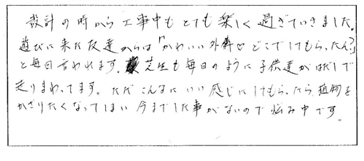 設計の時から工事中もとても楽しく過ぎていきました。
遊びに来た友達からは「かわいい外構せどこでしてもらったん?」
と毎日言われます。芝生も毎日のように子供達がはだしで
走りまわってます。ただこんなにいい感じにしてもらったら植物を
かざりたくなってしまい今までした事がないので悩み中です。